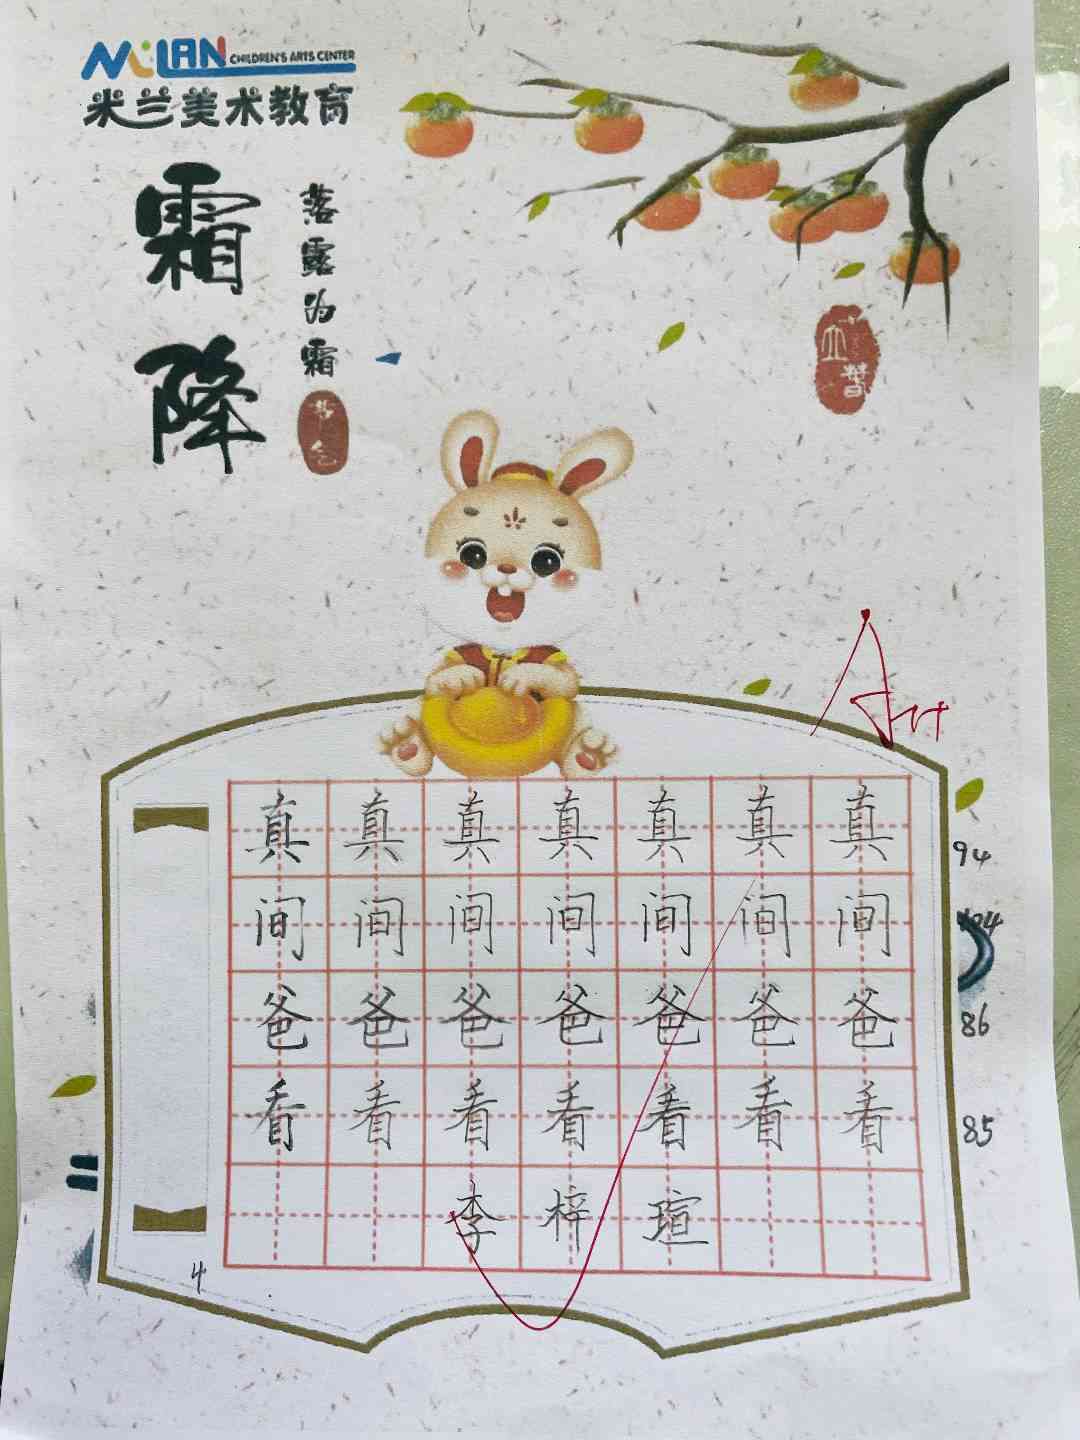 MILAN CHILDREN'S ARTS CENTER
米兰美术教育
霜降
落露为霜
节气
A++
真真真真真真真 94
间间间间间间间 94
爸爸爸爸爸爸爸 86
看看看看看看看 85
李梓瑄
4